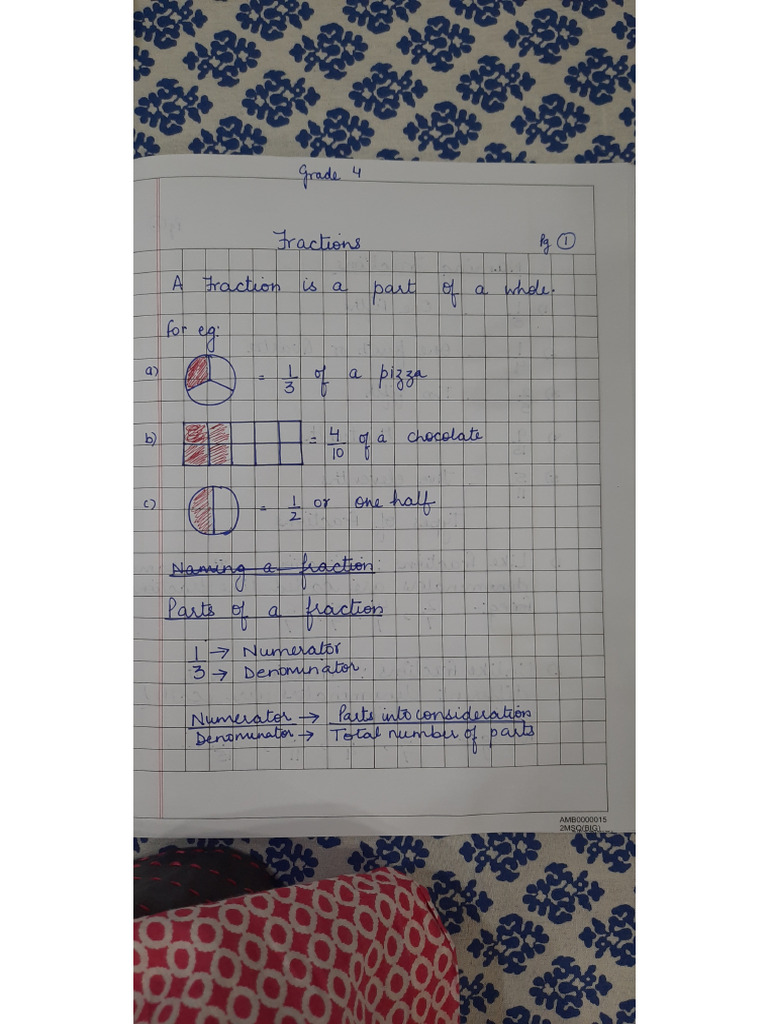 Grade 4
Fractions
Pg 1
A Fraction is a part of a whole.
for eg:
a) = 1/3 of a pizza
b) = 4/10 of a chocolate
c) = 1/2 or one half
Naming a fraction
Parts of a fraction
1 → Numerator
3 → Denominator
Numerator → Parts into consideration
Denominator → Total number of parts
AMB0000015
2MSQ(BIG)